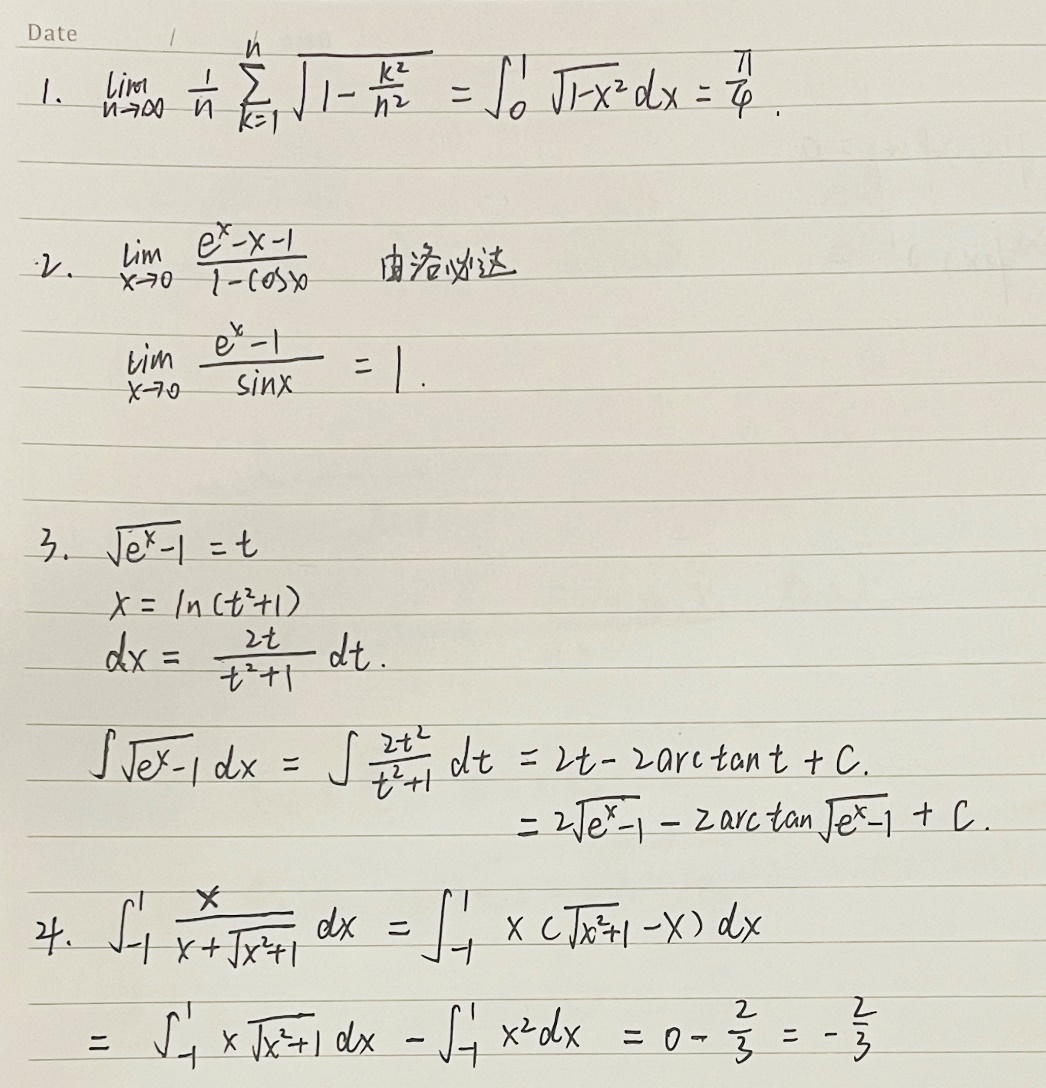 Date /
1. lim_{n→∞} 1/n ∑_{k=1}^{n} √(1 - k²/n²) = ∫_0^1 √(1-x²) dx = π/4 .
2. lim_{x→0} (e^x - x - 1)/(1 - cosx) 由洛必达
lim_{x→0} (e^x - 1)/(sinx) = 1.
3. √(e^x - 1) = t
x = ln(t²+1)
dx = 2t/(t²+1) dt.
∫ √(e^x - 1) dx = ∫ 2t²/(t²+1) dt = 2t - 2arctan t + C.
= 2√(e^x - 1) - 2arctan √(e^x - 1) + C.
4. ∫_{-1}^1 x/(x + √(x²+1)) dx = ∫_{-1}^1 x (√(x²+1) - x) dx
= ∫_{-1}^1 x √(x²+1) dx - ∫_{-1}^1 x² dx = 0 - 2/3 = - 2/3